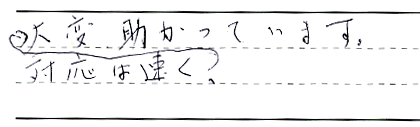 大変助かっています。
対応は速く?